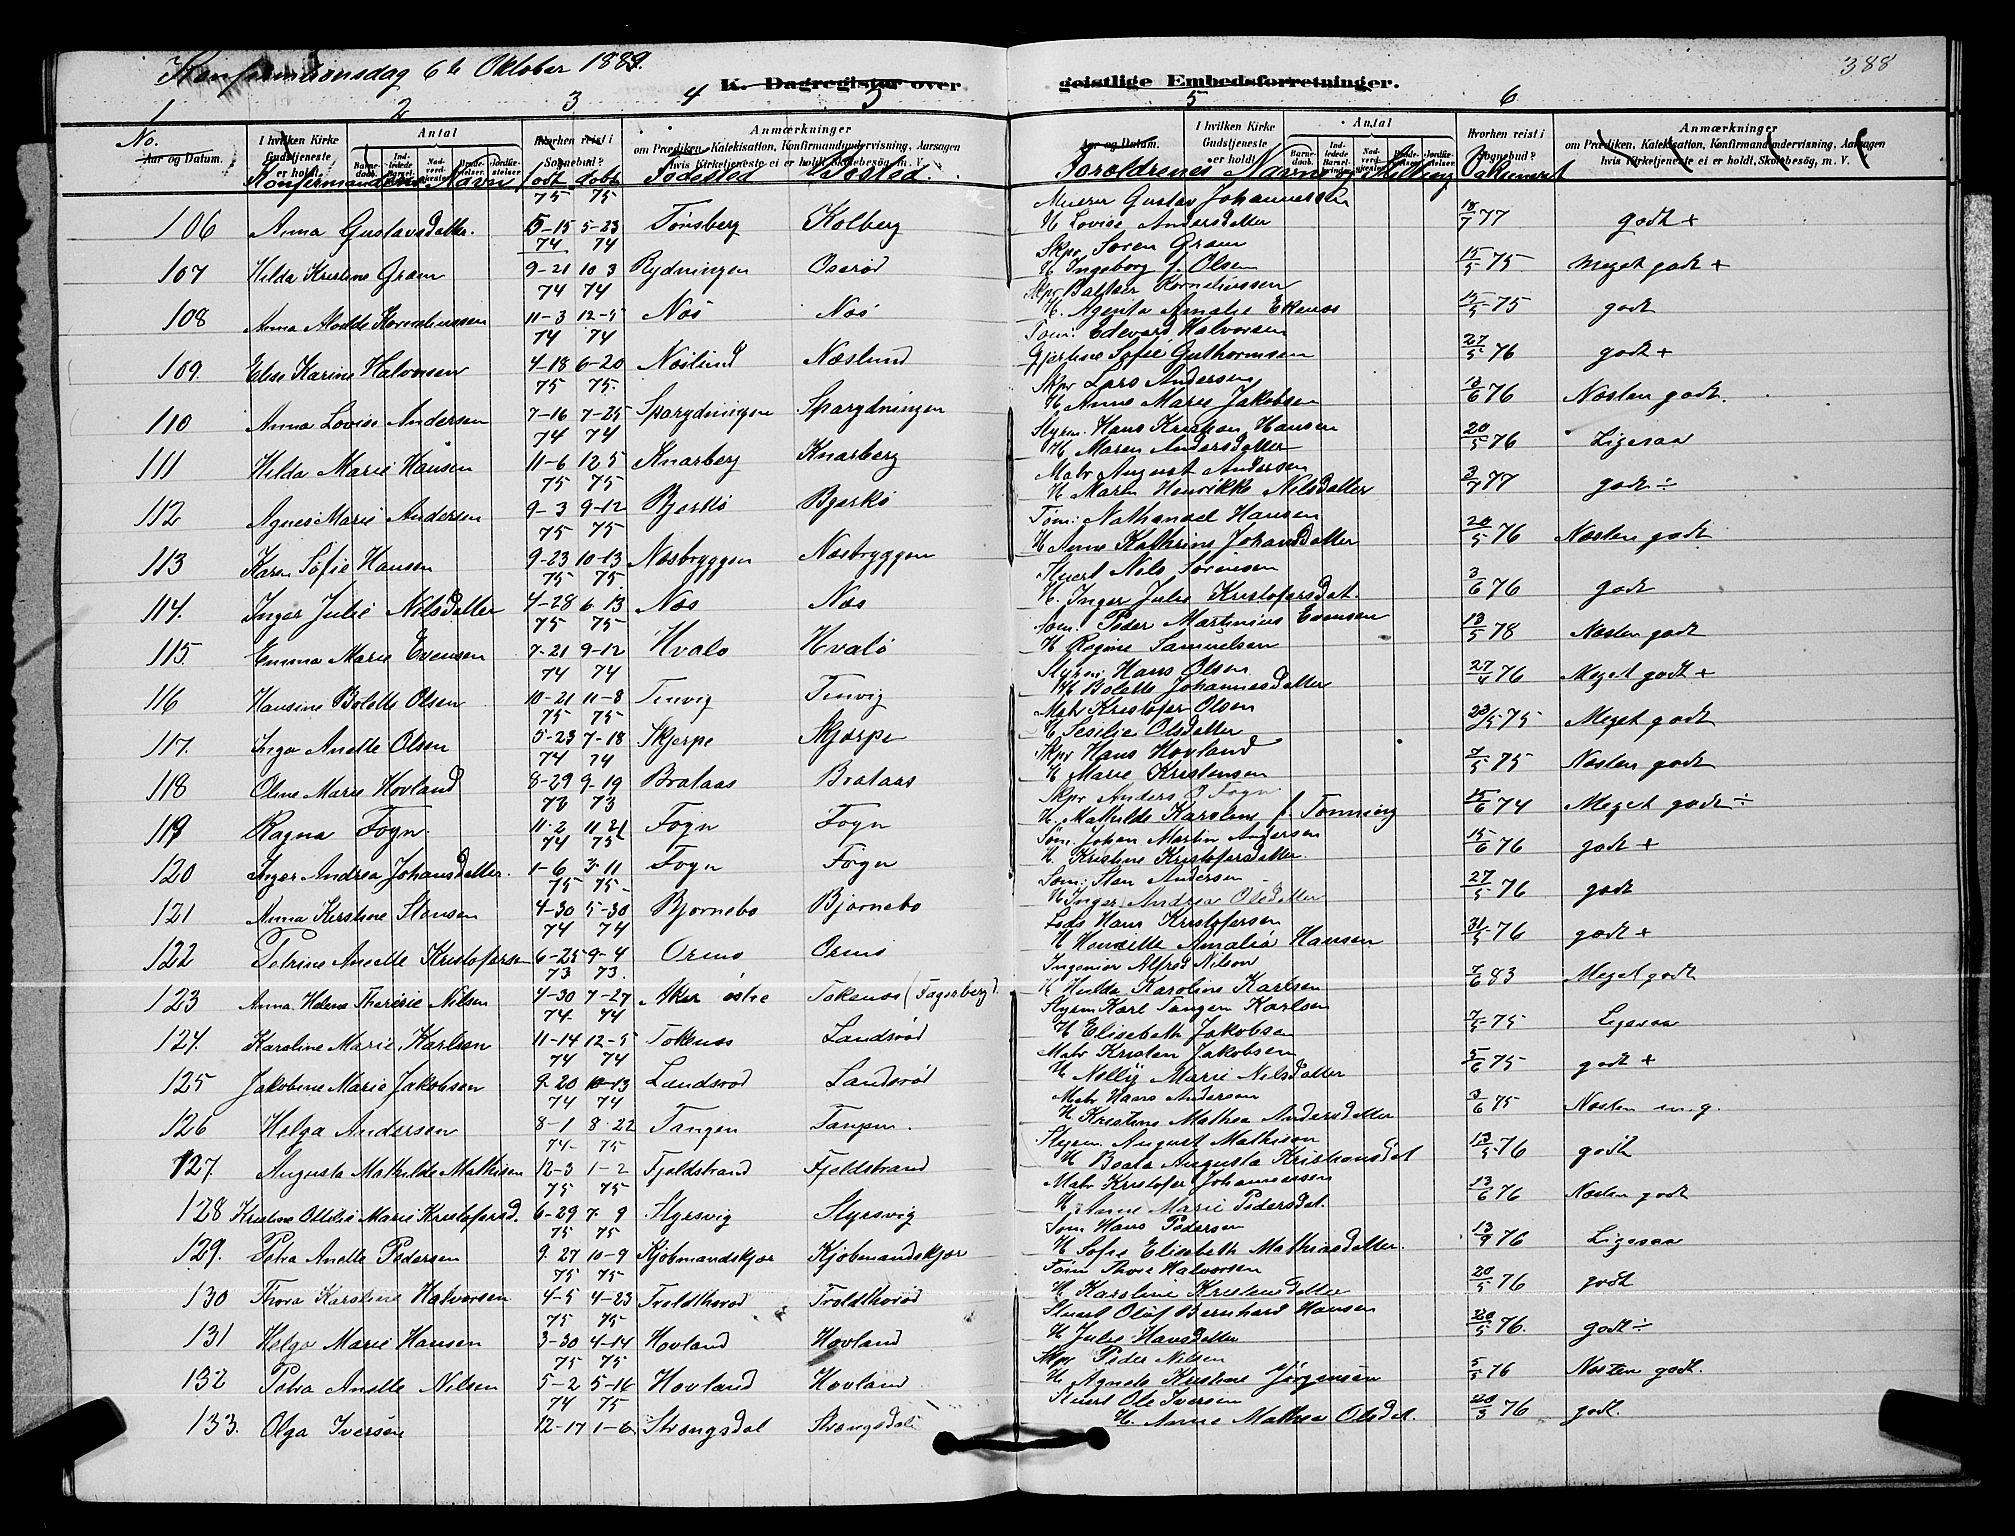 Konfirmationsdag 6te Oktober 1889.
388
K. Dagregister over geistlige Embedsforretninger.
1 2 3 4 5 5 6
No. Aar og Datum. I hvilken Kirke Gudstjeneste er holdt. Antal Hvorhen reist i Sognebud? Anmærkninger om Prædiken, Katekisation, Konfirmandundervisning, Aarsagen hvis Kirketjeneste ei er holdt, Skolebesøg, m. V.
Aar og Datum. I hvilken Kirke Gudstjeneste er holdt. Antal Hvorhen reist i Sognebud? Anmærkninger om Prædiken, Katekisation, Konfirmandundervisning, Aarsagen hvis Kirketjeneste ei er holdt, Skolebesøg, m. V.
Konfirmandens Navn født døbt Fødested Bosted. Foreldrenes Navn og Stilling Vaksineret
75 75 Murer Gustav Johannessen
106 Anna Gustavsdatter. 5-15 5-23 Tønsberg Kolberg H Lovise Andersdatter 18/7 77 godt +
74 74 Skpr Søren Gram
107 Hilda Kristine Gram 9-21 10 3 Rydningen Oserød H Ingeborg f. Olsen 15/5 75 Meget godt +
74 74 Skpr Baltser Korneliussen
108 Anna Korneliussen 11-3 12-5 Nes Nes H. Agenta Amalie Ekenes 15/5 75 godt
74 74 Tøm: Edevard Halvorsen
109. Elise Karine Halvorsen 4-18 6-20 Neslund Næslund Gjertine Sofie Guthormsen 27/5 76 godt +
75 75. Skpr Lars Andersen
110 Anna Lovise Andersen 7-16 7-25 Sparydningen Sparydningen H Anne Marie Jakobsen 13/6 76 Næsten godt.
74 74 Styrm. Hans Kristian Hansen
111 Hilda Marie Hansen 11-6 12 5 Knarberg Knarberg H Maren Andersdatter 20/5 76 Ligesaa
75 75 Matr August Andersen
112 Agnes Marie Andersen 9-3 9-12 Bjerkø Bjerkø H Maren Henrikke Nilsdatter 3/7 77 godt ÷
75 75 Tøm: Nathanael Hansen
113 Karen Sofie Hansen 9-23 10-13 Nesbryggen Nesbryggen H Anne Kathrine Johansdatter 20/5 76 Næsten godt
75 75 Stuert Nils Sørensen
114. Inger Julie Nilsdatter 4-28 6 13 Næs Næs H. Inger Julie Kristofersdat. 3/6 76 godt
75 75 Søm. Peder Martinius Evensen
115. Emma Marie Evensen 7-21 9-12 Hvalø Hvalø H Regine Samuelsen 13/5 78 Næsten godt
74 74 Styrm: Hans Olsen
116 Hansine Bolette Olsen 10-21 11-8 Tenvig Tenvig H Bolette Johannesdatter 27/4 76 Meget godt +
75 75 Matr Kristofer Olsen
117. Inga Anette Olsen 5-23 7-18 Skjerpe Skjærpe H Sesilie Olsdatter 23/5 75 Meget godt
74 74 Skpr Hans Hovland
118 Oline Marie Hovland 8-29 9-19 Brataas Brataas H Marie Kristensen 7/5 75 Næsten godt
73 73 Skpr Anders O Føyn
119 Ragna Føyn. 11-2 11 21 Føyn Føyn H. Mathilde Karoline f. Tønning 15/6 74 Meget godt ÷
74 75 Søm. Johan Martin Andersen
120 Inger Andrea Johansdatter. 1-6 3-11 Føyn Føyn H Kristine Kristofersdatter. 15/6 76 godt +
75 75 Søm: Sten Andersen
121 Anna Kirstine Stensen 4-30 5-30 Bjørnebo Bjørnebo H Inger Andrea Olsdatter 27/5 76 godt
74 74 Lods Hans Kristofersen
122 Petrine Anette Kristofersen 6-25 9-4 Ormø Ormø H Amalia Hansen 31/5 76 godt +
73 73. Ingeniør Alfred Nilson
123 Anna Helene Therese Nilsen 4-30 7-27 Aker østre Tokenes (Fagerberg). H Hulda Karoline Karlsen 7/6 83 Meget godt
74 74 Styrm Karl Tangen Karlsen
124. Karoline Marie Karlsen 11-14 12-5 Tokenes Landsrød H Elisabeth Jakobsen 7/5 75 Ligesaa
74 74 Matr Kristen Jakobsen
125 Jakobine Marie Jakobsen 9-20 10-13 Landsrød Landsrød H Nelly Marie Nilsdatter 5/6 75 godt +
74 74 Matr Hans Andersen
126 Helga Andersen 8-1 8-22 Tangen Tangen. H Kristine Mathea Andersdatter 3/6 75 Næsten m. g.
74- 75 Styrm. August Mathison
127. Augusta Mathilde Mathisen 12-3 1-2 Fjeldstrand Fjeldstrand H Beata Augusta Kristiansdat 13/5 76 godt
75 75 Matr Kristofer Johannessen
128 Kristine Ottilie Marie Kristofersd. 6-29 7 9 Styrsvig Styrsvig H Anne Marie Pedersdat. 13/6 76 Næsten godt
75 75 Søm Hans Pedersen
129. Petra Anette Pedersen 9-27 10-9 Kjøbmandskjær Kjøbmandskjær H Sofie Elisabeth Mathiasdatter. 13/9 76 Ligesaa
75 75 Tøm Thore Halvorsen
130 Thora Karoline Halvorsen 4-5 4-23 Troldthorød Troldthorød H Karoline Kristensdatter 20/5 76 godt
75 75 Stuert Oluf Bernhard Hansen
131 Helga Marie Hansen 3-30 4-14 Hovland Hovland H Julie Hansdatter 20/5 76. godt ÷
75 75 Skpr Peder Nilsen
132 Petra Anette Nilsen 5-2 5-16 Hovland Hovland H Agnete Kristine Jørgensen 5/5 76 Næsten godt.
74 75 Stuert Ole Iversen
133. Olga Iversen 12-17 1-6 Strengsdal Strængsdal H. Anne Mathea Olsdat. 20/3 76 godt.